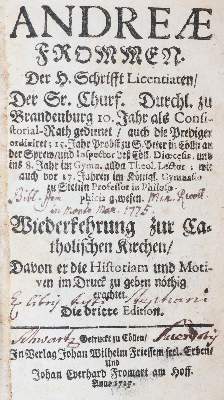 ANDREÆ
FROMMEN.
Der H. Schrifft Licentiaten/
Der Sr. Churf. Durchl. zu
Brandenburg 10. Jahr als Consi-
storial-Rath gedienet / auch die Prediger
ordiniret; 15. Jahr Probst zu S. Peter in Cölln an
der Spree, und Inspector
8. Jahr im Gymn. allda Theol. Lector; wie
auch vor 17. Jahren im Königl. Gymnasio
zu Stettin Professor in Philoso-
phicis gewesen.
1775.
Wiederkehrung zur Ca-
tholischen Kirchen/
Davon er die Historiam und Moti-
ven im Druck zu geben nöthig
erachtet.
Ex libris
Die dritte Edition.
Schwartz
Getruckt zu Cöllen/
In Verlag Johan Wilhelm Friessem seel. Erben/
Und
Johan Everhard Fromart am Hoff.
Anno